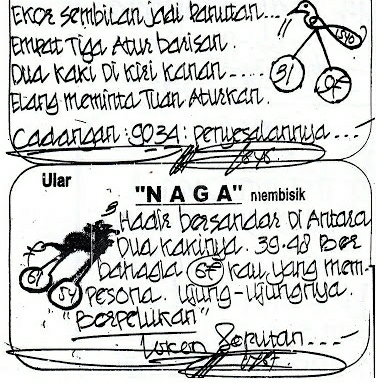 Ekor sembilan jadi panutan...
Empat Tiga Atur barisan.
Dua kaki Di kiri kanan-----
Elang meminta Tuan Aturkan.
Cadangan: 9034: penyesalannya---
Ular
"NAGA" membisik
Hadir bersandar Di Antara
Dua kakinya. 39.48 Ber
bahagia 67 kau, yang mem-
pesona. ujung-ujungnya.
"Berpelukan"